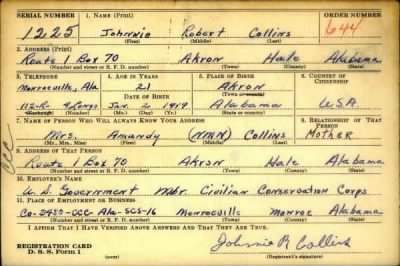 SERIAL NUMBER 1. NAME (Print) ORDER NUMBER
1225 Johnnie Robert Collins 644
(First) (Middle) (Last)
2. ADDRESS (Print)
Route 1 Box 70 Akron Hale Alabama
(Number and street or R. F. D. number) (Town) (County) (State)
3. TELEPHONE 4. AGE IN YEARS 5. PLACE OF BIRTH 6. COUNTRY OF CITIZENSHIP
Monroeville, Ala 21 Akron
DATE OF BIRTH (Town or county)
112-R 4 Longs Jan 2 1919 Alabama USA
(Exchange) (Number) (Mo.) (Day) (Yr.) (State or country)
7. NAME OF PERSON WHO WILL ALWAYS KNOW YOUR ADDRESS 8. RELATIONSHIP OF THAT PERSON
Mrs. Amandy (NMN) Collins Mother
(Mr., Mrs., Miss) (First) (Middle) (Last)
CCC
9. ADDRESS OF THAT PERSON
Route 1 Box 70 Akron Hale Alabama
(Number and street or R. F. D. number) (Town) (County) (State)
10. EMPLOYER'S NAME
U.S. Government Mbr. Civilian Conservation Corps.
11. PLACE OF EMPLOYMENT OR BUSINESS
Monroeville Monroe Alabama
(Number and street or R. F. D. number) (Town) (County) (State)
I AFFIRM THAT I HAVE VERIFIED ABOVE ANSWERS AND THAT THEY ARE TRUE.
REGISTRATION CARD Johnie R Collins
D. S. S. Form 1 (Registrant's signature)